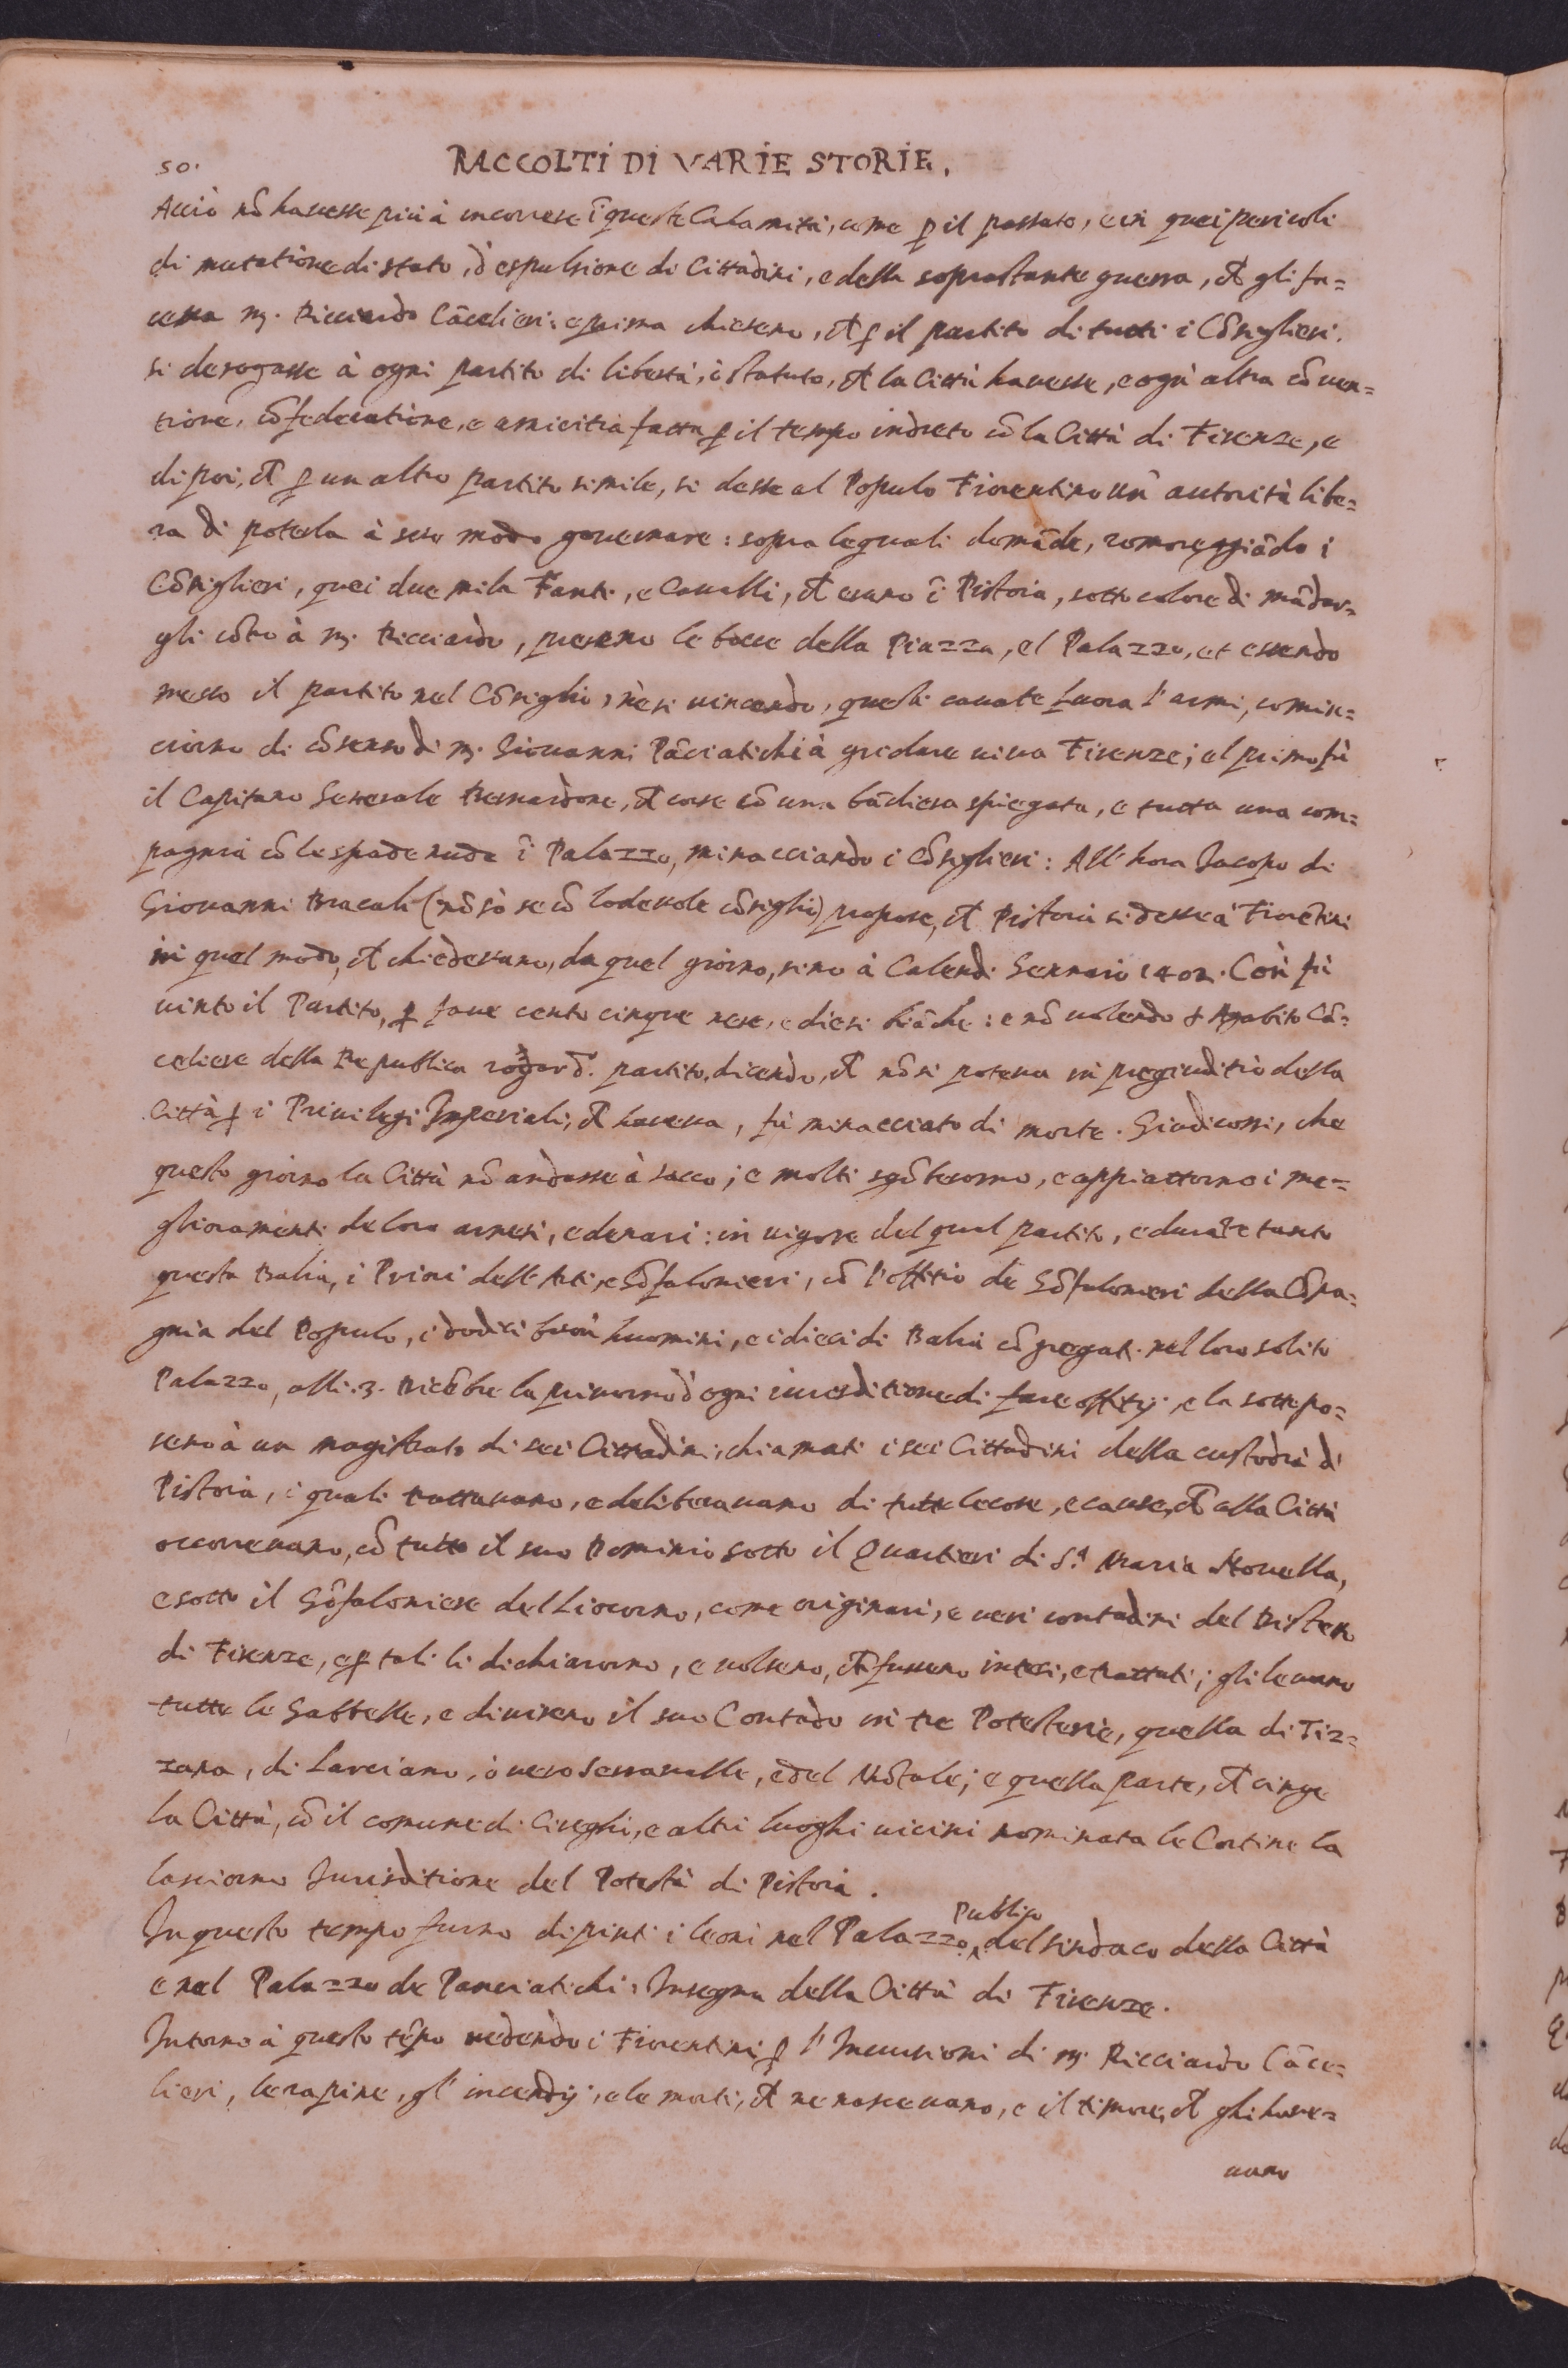 50.
RACCOLTI DI VARIE STORIE.
Acciò nō havesse più à incorrere ī queste Calamità, come ꝑ il passato, e in quei pericoli
di mutatione di stato, d'espulsione di Cittadini, e della soprastante guerra, ch̄ gli fa=
ceva m. Ricciardo Cācelieri: e prima chiesero, ch̄ ꝑ il partito di tutti i Cōsiglieri.
si derogasse à ogni partito di libertà, ò statuto, ch̄ la Città havesse, e ogn' altra cōven=
tione, cōfederatione, e amicitia fatta ꝑ il tempo indreto cō la Città di Firenze, e
dipoi, ch̄ ꝑ un altro partito simile, si desse al Populo Fiorentino un' autorità libe=
ra di poterla à suo modo governare: sopra le quali domāde, romoreggiādo i
Cōsiglieri, quei due mila Fanti, e Cavalli, ch̄ erano ī Pistoia, sotto colore di mādar=
gli cōtro à m. Ricciardo, presero le bocce della Piazza, el Palazzo, et essendo
messo il partito nel Cōsiglio, nè si vincendo, questi cavate fuora l'armi, comin=
ciorno di cōsenso di m. Giovanni Pāciatichi à gridare viva Firenze; el primo fù
il Capitano Generale Bernardone, ch̄ corse cō una bādiera spiegata, e tutta una com=
pagnia cō le spade nude ī Palazzo, minacciando i Cōsiglieri: All'hora Jacopo di
Giovanni Bracali (nō sò se cō lodevole cōsiglio) propose, ch̄ Pistoia si desse a' Fiorētini
in quel modo, ch̄ chiedevano, da quel giorno, sino à Calendi Gennaio 1402. Così fù
vinto il Partito, ꝑ fave cento cinque nere, e dieci biāche: e nō volendo Agabito Cā=
celiere della Republica rogar d. partito, dicendo, ch̄ nō si poteva in pregiuditio della
Città ꝑ i Privilegi Imperiali, ch̄ haveva, fù minacciato di morte. Giudicossi, che
questo giorno la Città nō andasse à sacco; e molti sgōberorno, e appiattorno i me=
glioramenti de loro arnesi, e denari: in vigore del qual partito, e durāte tanto
questa Balia, i Priori dell'Arti, e Gōfalonieri, cō l'offitio de Gōfalonieri della Cōpa=
gnia del Populo, i dodici buon huomini, e i dieci di Balia cōgregati nel loro solito
Palazzo, alli .3. Dicēbre la privorno d'ogni iurisditione di fare offitij, e la sottopo=
sero à un magistrato di sei Cittadini, chiamati i sei Cittadini della custodia di
Pistoia, i quali trattavano, e deliberavano di tutte le cose, e cause, ch̄ alla Città
occorrevano, cō tutto il suo Dominio sotto il Quartieri di S.ª Maria Novella,
e sotto il Gōfaloniere del Liocorno, come originari, e veri contadini del Distretto
di Firenze, e ꝑ tali li dichiarorno, e volsero, ch̄ fussero intesi, e trattati; gli levarno
tutte le Gabbelle, e divisero il suo Contado in tre Potesterie, quella di Tiz=
zana, di Larciano, ò vero Serravalle, e del Mōtale; e quella parte, ch̄ cinge
la Città, cō il comune di Cireghi, e altri luoghi vicini nominata le Cortine la
lasciorno Jurisditione del Potestà di Pistoia.
In questo tempo furno dipinti i leoni nel Palazzo Publico, del sindaco della Città
e nel Palazzo de Panciatichi, Insegna della Città di Firenze.
Intorno à questo tēpo vedendo i Fiorentini ꝑ l'Incursioni di m. Ricciardo Cāce=
lieri, le rapine, gl'incendij, e le morti, ch̄ ne nascevano, e il timore, ch̄ gli have=
vano